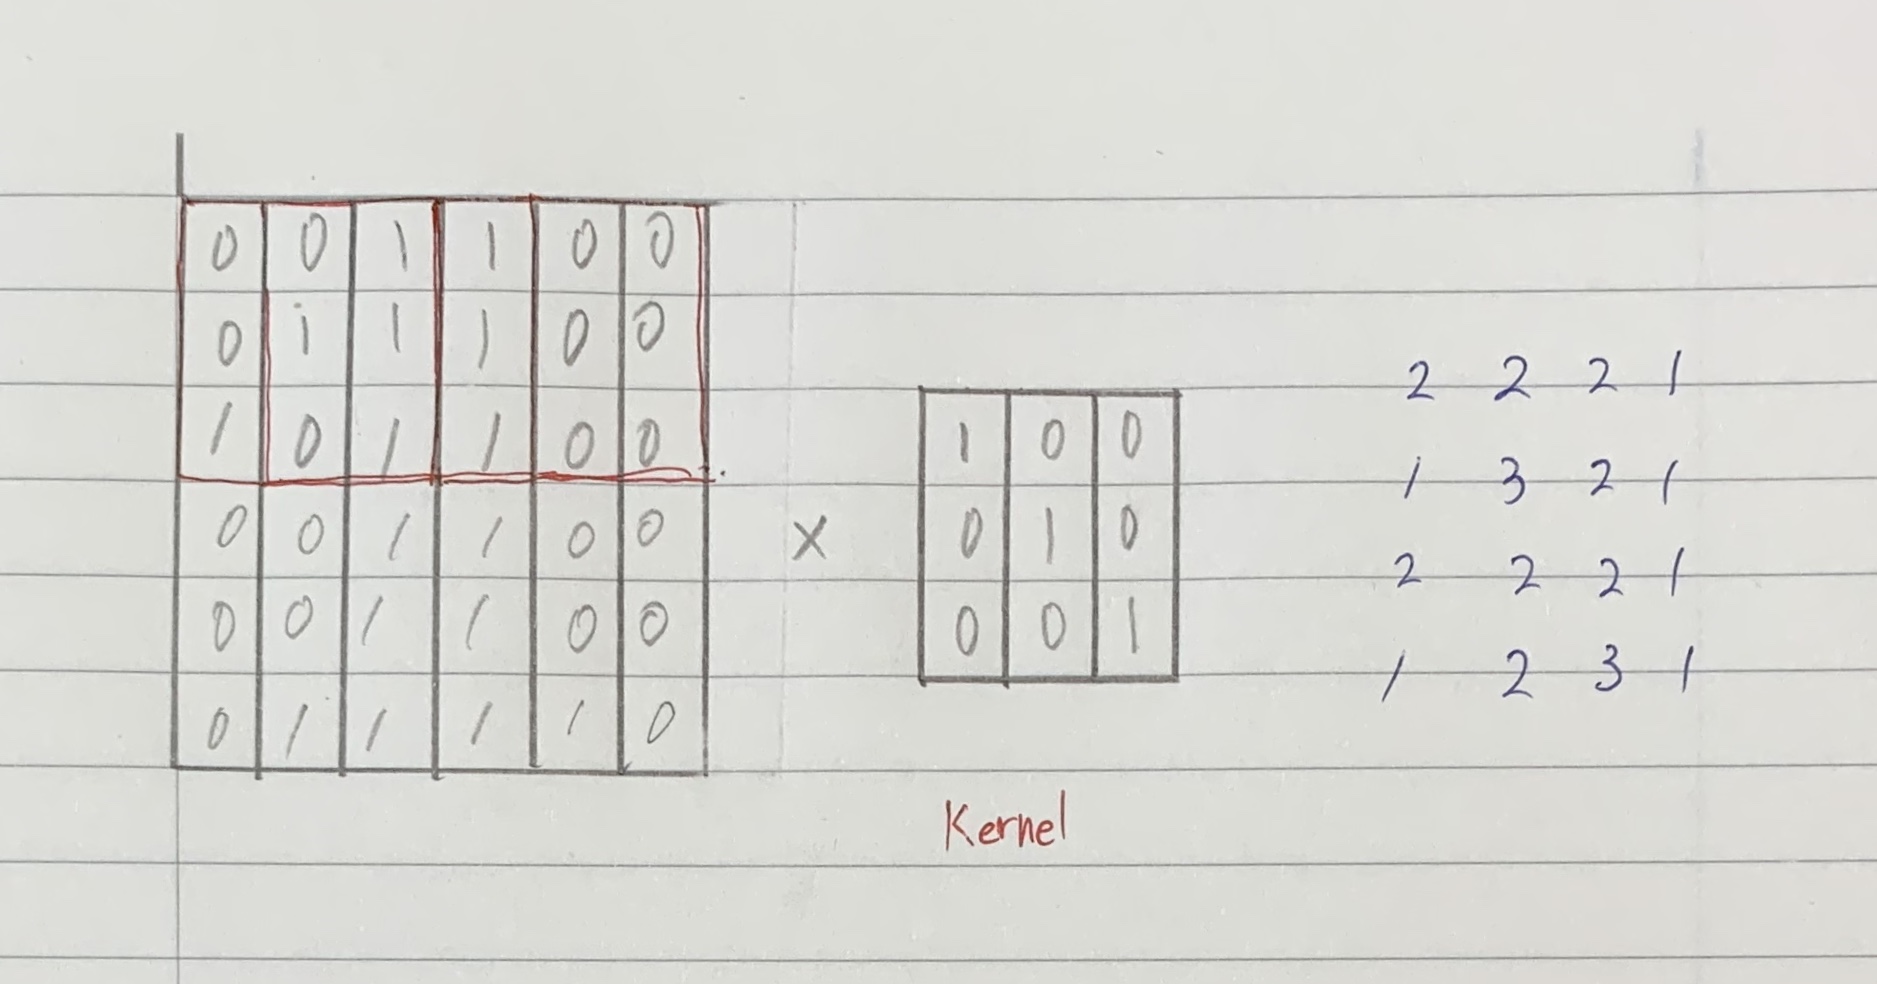 0 0 1 1 0 0
0 1 1 1 0 0
1 0 1 1 0 0
0 0 1 1 0 0
0 0 1 1 0 0
0 1 1 1 1 0
×
1 0 0
0 1 0
0 0 1
Kernel
2 2 2 1
1 3 2 1
2 2 2 1
1 2 3 1